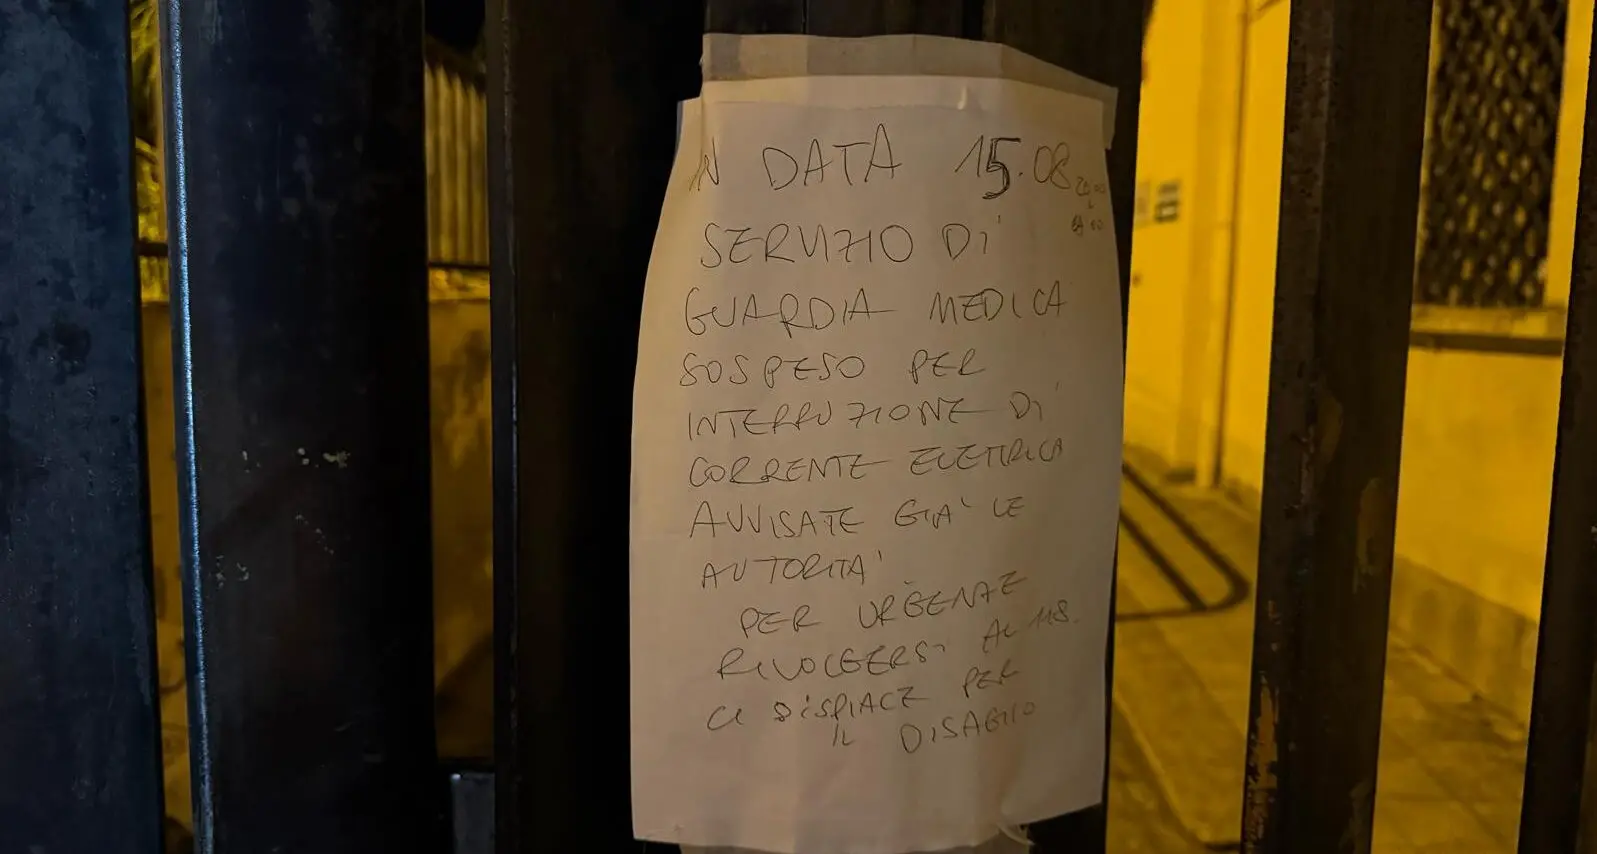 IN DATA 15.08
SERVIZIO DI
GUARDIA MEDICA
SOSPESO PER
INTERRUZIONE DI
CORRENTE ELETTRICA
AVVISATE GIA' LE
AUTORITA'
PER URGENZE
RIVOLGERSI AL 118.
CI DISPIACE PER
IL DISAGIO